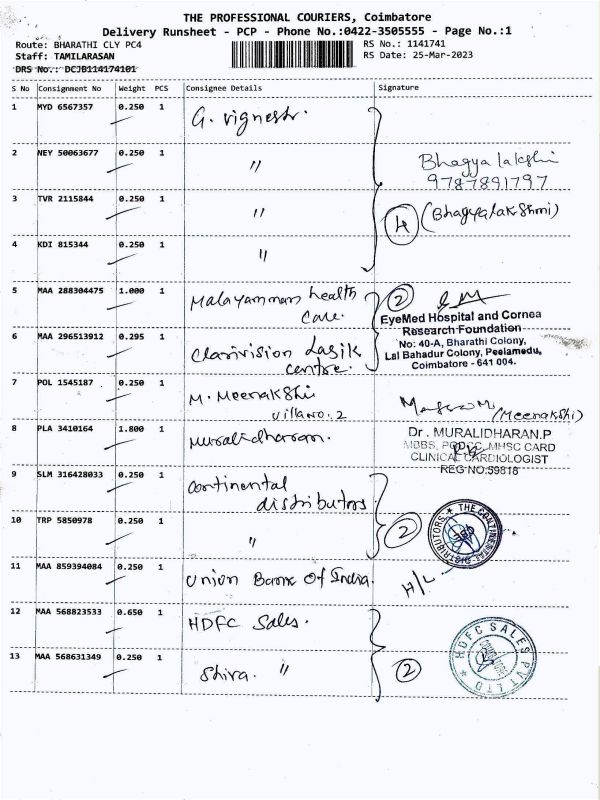 THE PROFESSIONAL COURIERS, Coimbatore
Delivery Runsheet - PCP - Phone No.:0422-3505555 - Page No.:1
Route: BHARATHI CLY PC4 RS No.: 1141741
Staff: TAMILARASAN RS Date: 25-Mar-2023
DRS No.: DCJB114174101
S No Consignment No Weight PCS Consignee Details Signature
1 MYD 6567357 0.250 1 G. vignesh.
2 NEY 50063677 0.250 1 "
Bhagya lakshi
9787891797
3 TVR 2115844 0.250 1 "
4 (Bhagyalakshmi)
4 KDI 815344 0.250 1 "
5 MAA 288304475 1.000 1 Malayamman health
care.
2
EyeMed Hospital and Cornea
Research Foundation
No: 40-A, Bharathi Colony,
Lal Bahadur Colony, Peelamedu,
Coimbatore - 641 004.
6 MAA 296513912 0.295 1 Clarivision Lasik
centre.
7 POL 1545187 0.250 1 M. Meenakshi
villa No. 2
(Meenakshi)
8 PLA 3410164 1.800 1 Muralidharan.
Dr. MURALIDHARAN.P
MBBS, PGDCC, MHSC CARD
CLINICAL CARDIOLOGIST
REG NO:59818
9 SLM 316428033 0.250 1 continental
distributors
10 TRP 5850978 0.250 1 "
2
THE CONTINENTAL DISTRIBUTORS
11 MAA 859394084 0.250 1 Union Bank Of India.
H/L
12 MAA 568823533 0.650 1 HDFC Sales.
HDFC SALES PVT LTD
13 MAA 568631349 0.250 1 Shiva. "
2